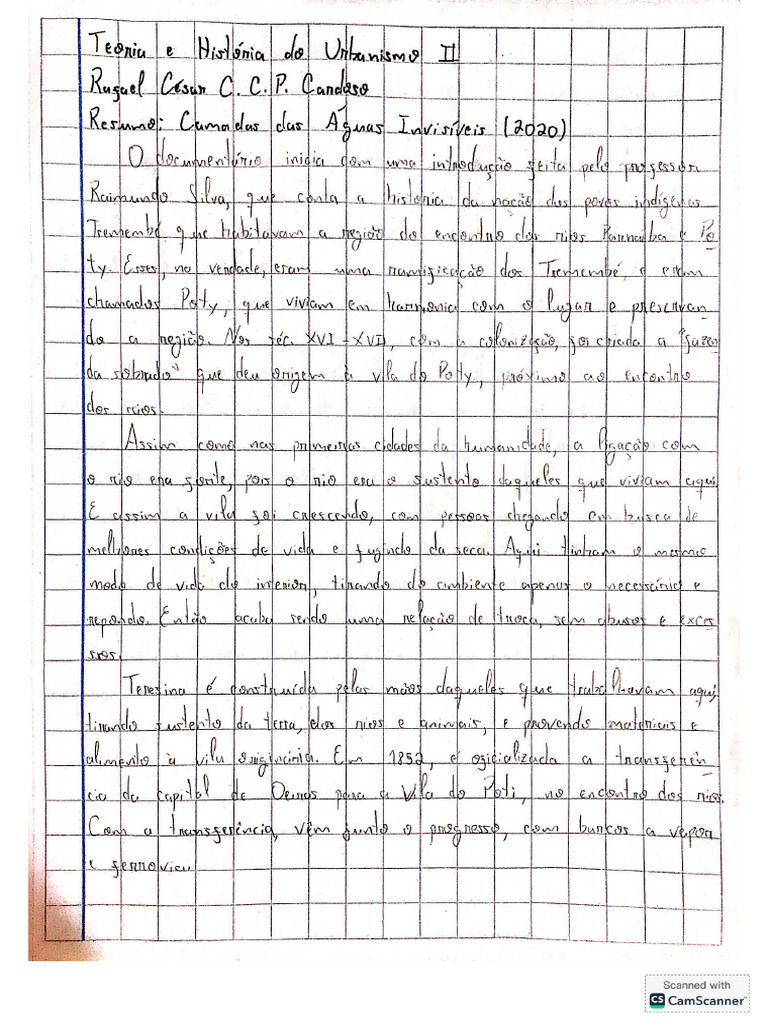 Teoria e História do Urbanismo II
Rafael César C. C. P. Cardoso
Resumo: Camadas das Águas Invisíveis (2020)
O documentário inicia com uma introdução feita pelo professor
Raimundo Silva, que conta a história da nação dos povos indígenas
Tremembé que habitavam a região do encontro dos rios Parnaíba e Po
ty. Esses, na verdade, eram uma ramificação dos Tremembé, e eram
chamados Poty, que viviam em harmonia com o lugar e preservan
do a região. Nos séc. XVI - XVII, com a colonização, foi criada a "fazen
da sobrado" que deu origem à vila do Poty, próximo ao encontro
dos rios.
Assim como nas primeiras cidades da humanidade, a ligação com
o rio era forte, pois o rio era o sustento daqueles que viviam aqui.
E assim a vila foi crescendo, com pessoas chegando em busca de
melhores condições de vida e fugindo da seca. Aqui tinham o mesmo
modo de vida do interior, tirando do ambiente apenas o necessário e
repondo. Então acaba sendo uma relação de troca, sem abusos e exces
ssos.
Teresina é construída pelas mãos daqueles que trabalhavam aqui,
tirando sustento da terra, dos rios e animais, e provendo materiais e
alimento à vila originária. Em 1852, é oficializada a transferên
cia da capital de Oeiras para a Vila do Poti, no encontro dos rios.
Com a transferência, vêm junto o progresso, com barcos a vapor
e ferrovia
Scanned with
CS CamScanner